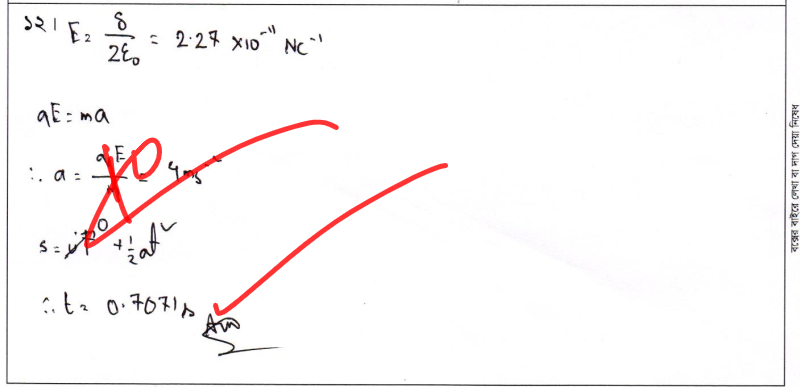 ১২। E = δ/2ε₀ = 2.27 ×10⁻¹¹ NC⁻¹
qE = ma
∴ a = qE/m = 4 ms⁻²
10
s = ut⁰ + ½at²
∴ t = 0.7071 s
Ans
বক্সের বাইরে লেখা বা দাগ দেয়া নিষেধ